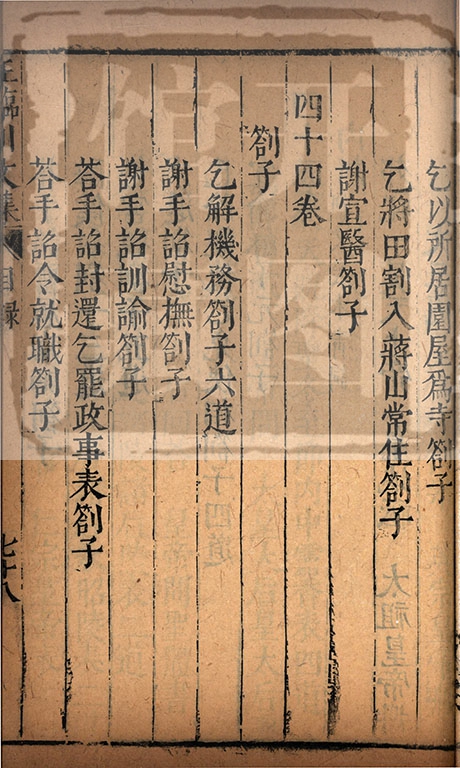 乞以所居園屋爲寺劄子
乞將田割入蔣山常住劄子
謝宣醫劄子
四十四卷
劄子
乞解機務劄子六道
謝手詔慰撫劄子
謝手詔訓諭劄子
荅手詔封還乞罷政事表劄子
荅手詔令就職劄子
王臨川文集 目録 七十八